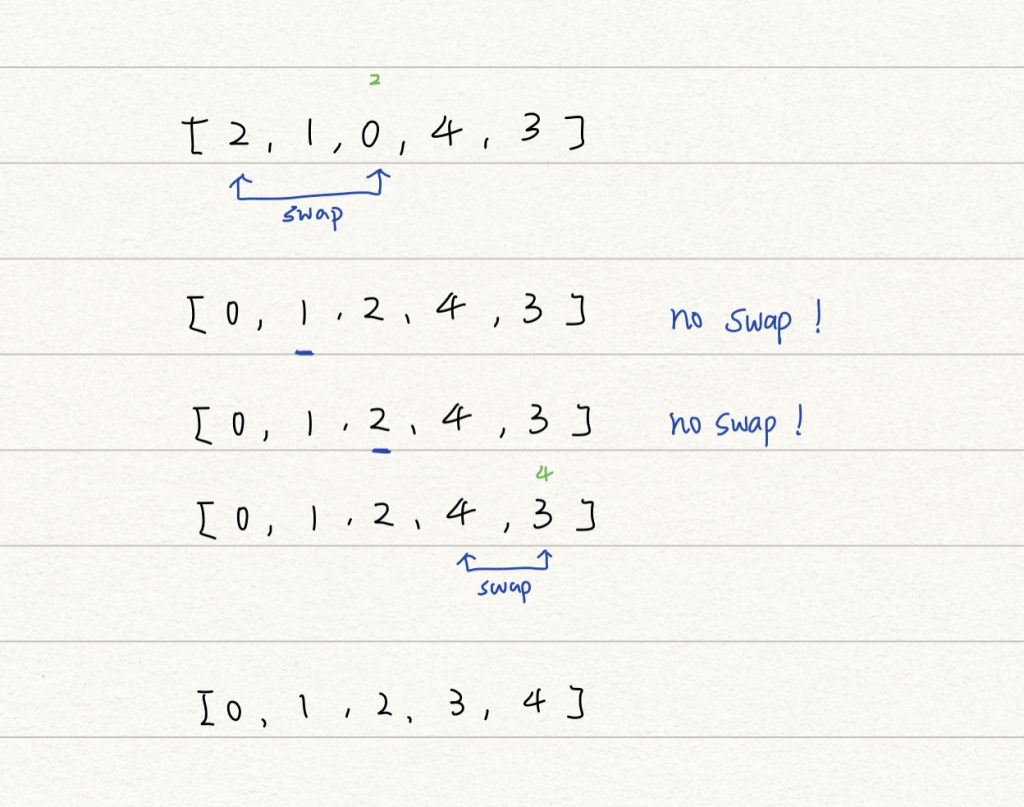 2
[ 2, 1, 0, 4, 3 ]
swap
[ 0, 1, 2, 4, 3 ] no swap !
[ 0, 1, 2, 4, 3 ] no swap !
4
[ 0, 1, 2, 4, 3 ]
swap
[ 0, 1, 2, 3, 4 ]